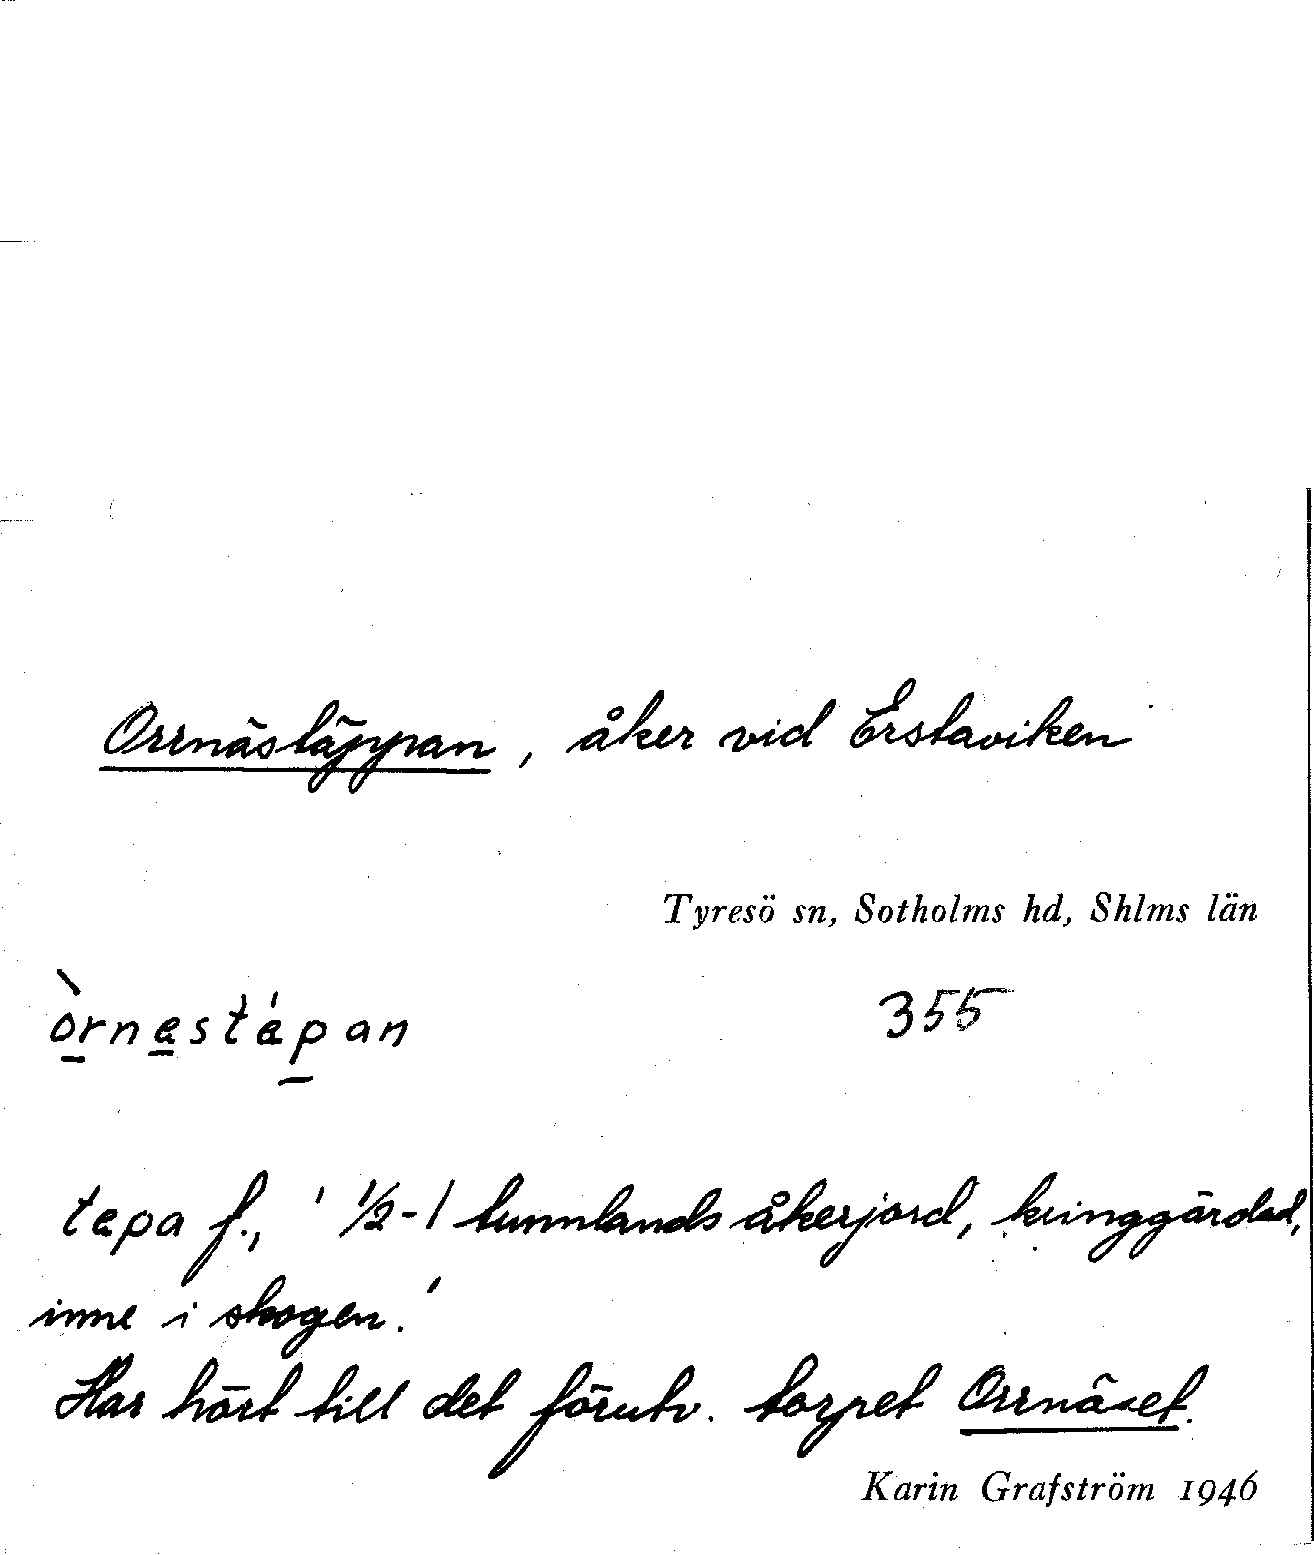 Orrnästäppan, åker vid Erstaviken
Tyresö sn, Sotholms hd, Shlms län
òrnestépan
355
tepa f., ' ½-1 tunnlands åkerjord, kringgärdad,
inne i skogen.'
Har hört till det förutv. torpet Orrnäset.
Karin Grafström 1946